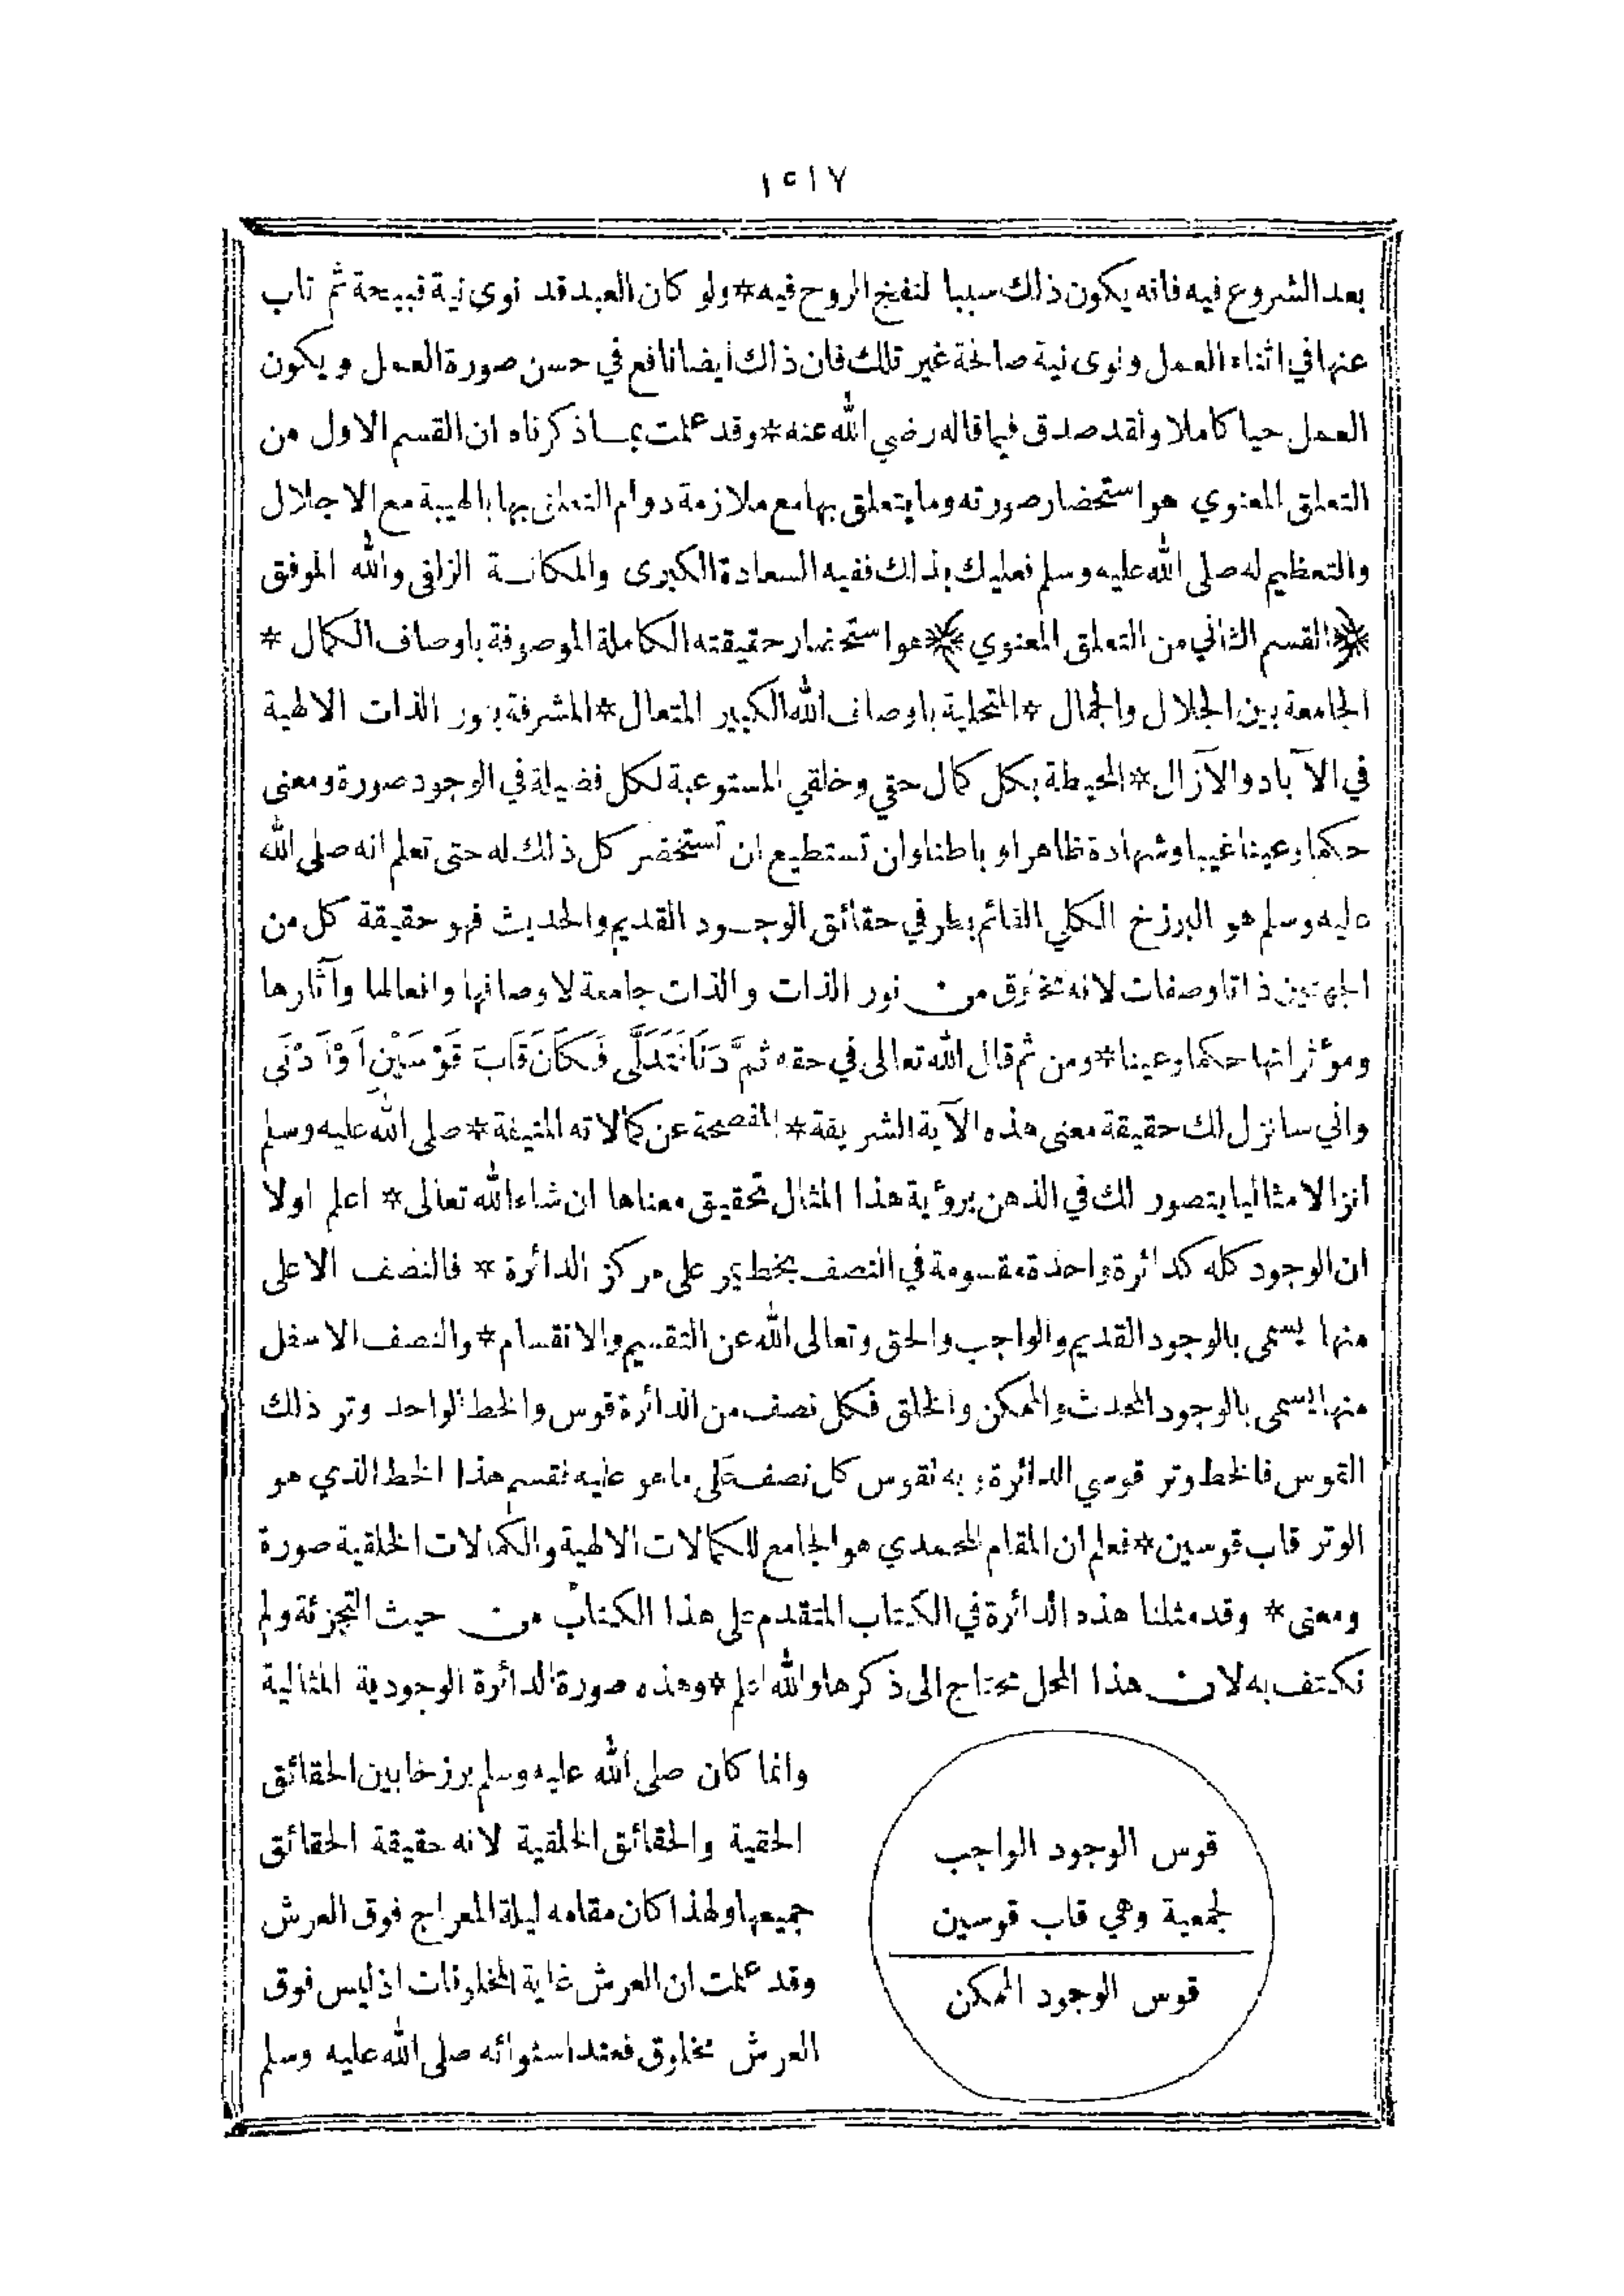 ١٥١٧
بعد الشروع فيه فانه يكون ذلك سببا لنفخ الروح فيه * ولو كان العبد قد نوى نية قبيحة ثم تاب
عنها في اثناء العمل ونوى نية صالحة غير تلك فان ذلك ايضا نافع في حسن صورة العمل ويكون
العمل حيا كاملا ولقد صدق فيما قاله رضي الله عنه * وقد علمت بما ذكرناه ان القسم الاول من
التعلق المعنوي هو استحضار صورته وما يتعلق بها مع ملازمة دوام التعلق بها بالهيبة مع الاجلال
والتعظيم له صلى الله عليه وسلم فعليك بذلك ففيه السعادة الكبرى والمكانة الزلفى والله الموفق
﴿ القسم الثاني من التعلق المعنوي ﴾ هو استحضار حقيقته الكاملة الموصوفة باوصاف الكمال *
الجامعة بين الجلال والجمال * المتحلية باوصاف الله الكبير المتعال * المشرفة بنور الذات الالهية
في الآباد والآزال * المحيطة بكل كمال حقي وخلقي المستوعبة لكل فضيلة في الوجود صورة ومعنى
حكما وعينا غيبا وشهادة ظاهرا و باطنا ولن تستطيع ان تستحضر كل ذلك له حتى تعلم انه صلى الله
عليه وسلم هو البرزخ الكلي القائم بطرفي حقائق الوجود القديم والحديث فهو حقيقة كل من
الجهتين ذاتا وصفات لانه مخلوق من نور الذات والذات جامعة لاوصافها وافعالها وآثارها
ومؤثراتها حكما وعينا * ومن ثم قال الله تعالى في حقه ثُمَّ دَنَا فَتَدَلَّى فَكَانَ قَابَ قَوْسَيْنِ اَوْ اَدْنَى
واني سانزل لك حقيقة معنى هذه الآية الشريفة * المفصحة عن كمالاته المنيفة * صلى الله عليه وسلم
انزالا مثاليا يتصور لك في الذهن برؤية هذا المثال تحقيق معناها ان شاء الله تعالى * اعلم اولا
ان الوجود كله كدائرة واحدة مقسومة في النصف بخط يمر على مركز الدائرة * فالنصف الاعلى
منها يسمى بالوجود القديم والواجب والحق وتعالى الله عن التقسيم والانقسام * والنصف الاسفل
منها يسمى بالوجود المحدث والممكن والخلق فكل نصف من الدائرة قوس والخط الواحد وتر ذلك
القوس فالخط وتر قوسي الدائرة و به تقوس كل نصف على ما هو عليه نقسم هذا الخط الذي هو
الوتر قاب قوسين * فعلم ان المقام المحمدي هو الجامع للكمالات الالهية والكمالات الخلقية صورة
ومعنى * وقد مثلنا هذه الدائرة في الكتاب المتقدم على هذا الكتاب من حيث التجزئة ولم
نكتف به لان هذا المحل محتاج الى ذكرها والله اعلم * وهذه صورة الدائرة الوجودية المثالية
قوس الوجود الواجب
لجمعية وهي قاب قوسين
قوس الوجود الممكن
وانما كان صلى الله عليه وسلم برزخا بين الحقائق
الحقية والحقائق الخلقية لانه حقيقة الحقائق
جميعها ولهذا كان مقامه ليلة المعراج فوق العرش
وقد علمت ان العرش غاية المخلوقات اذ ليس فوق
العرش مخلوق فعند استوائه صلى الله عليه وسلم